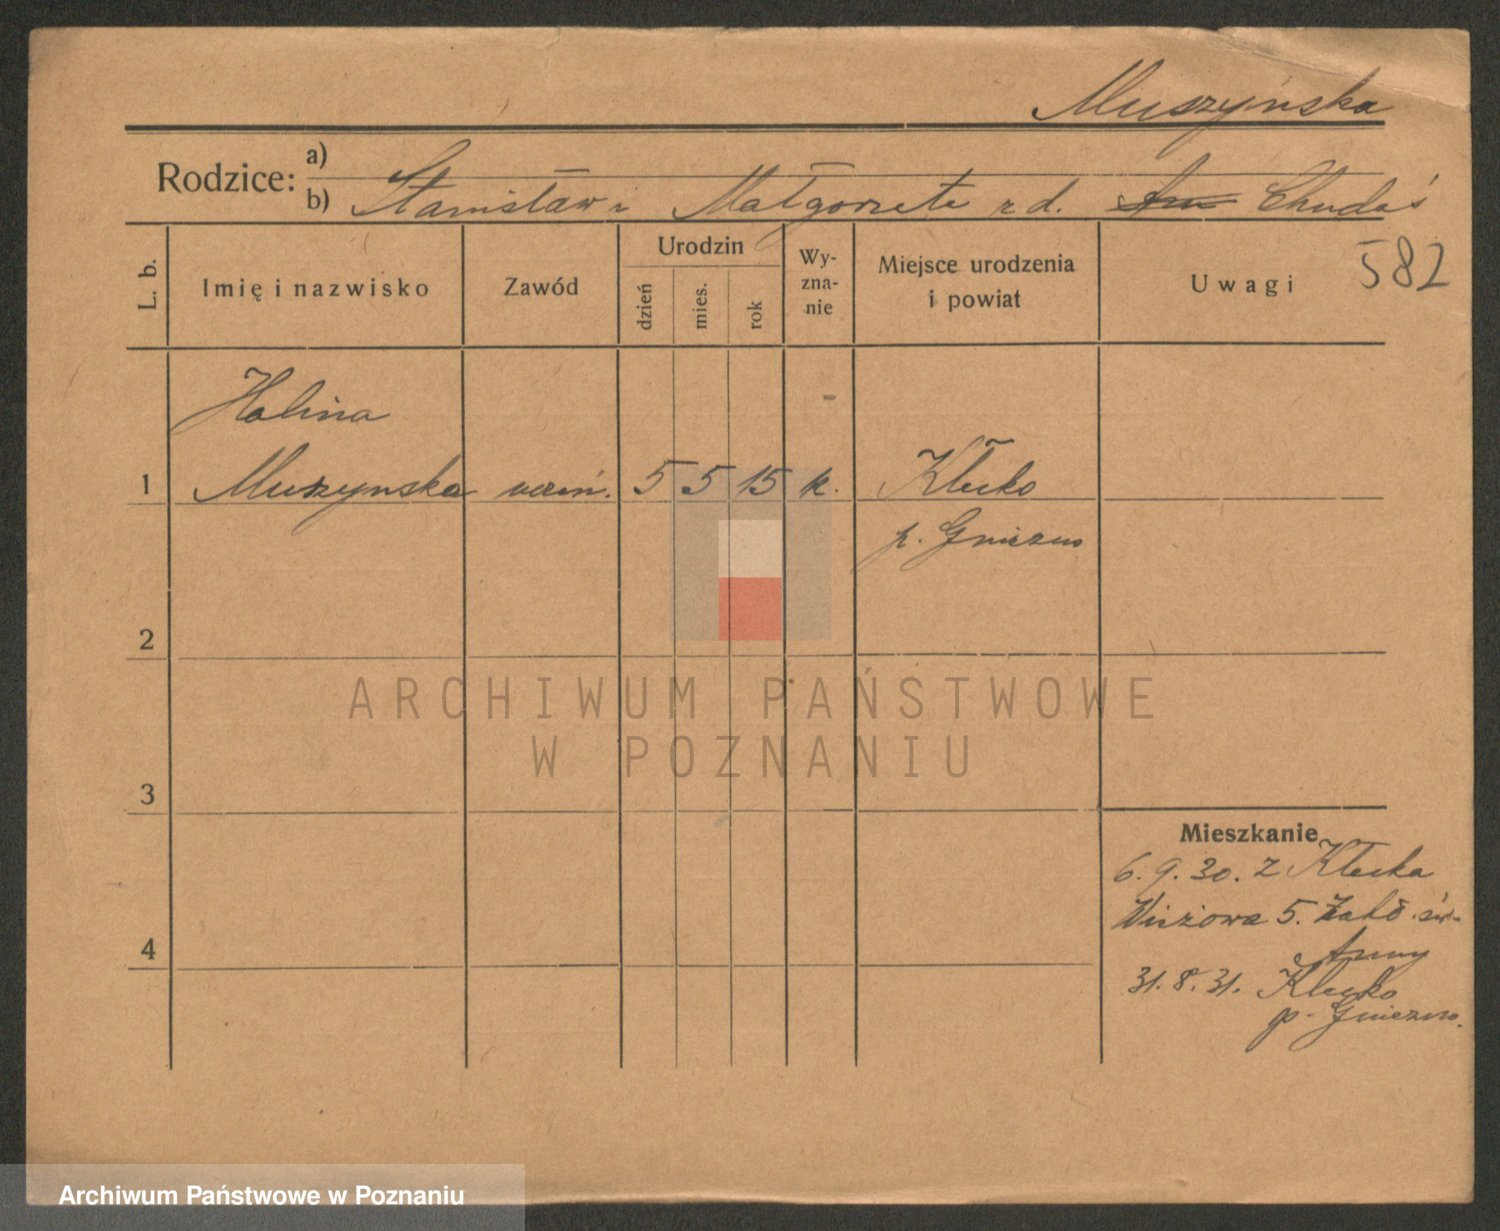 Muszyńska
Rodzice:
a)
b) Stanisław i Małgorzata z d. Chudaś
582
L. b.
Imię i nazwisko
Zawód
Urodzin
dzień
mies.
rok
Wy-
zna-
nie
Miejsce urodzenia
i powiat
Uwagi
Halina
1 Muszynska uczeń. 5 5 15 k. Kłecko
p. Gniezno
2
3
4
Mieszkanie
6.9.30. z Kłecka
5. Zakł. św.
Anny
31.8.31. Kłecko
p. Gniezno.
ARCHIWUM PAŃSTWOWE
W POZNANIU
Archiwum Państwowe w Poznaniu